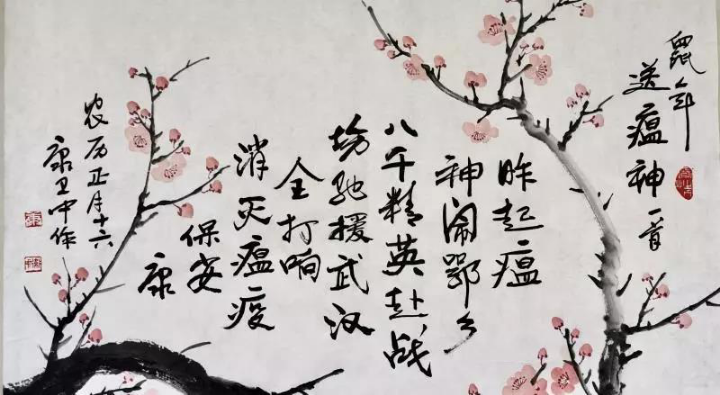 鼠年
送瘟神一首
昨起瘟
神闹鄂乡
八千精英赴战
场驰援武汉
全打响
消灭瘟疫
保安
康
农历正月十六
康卫中作